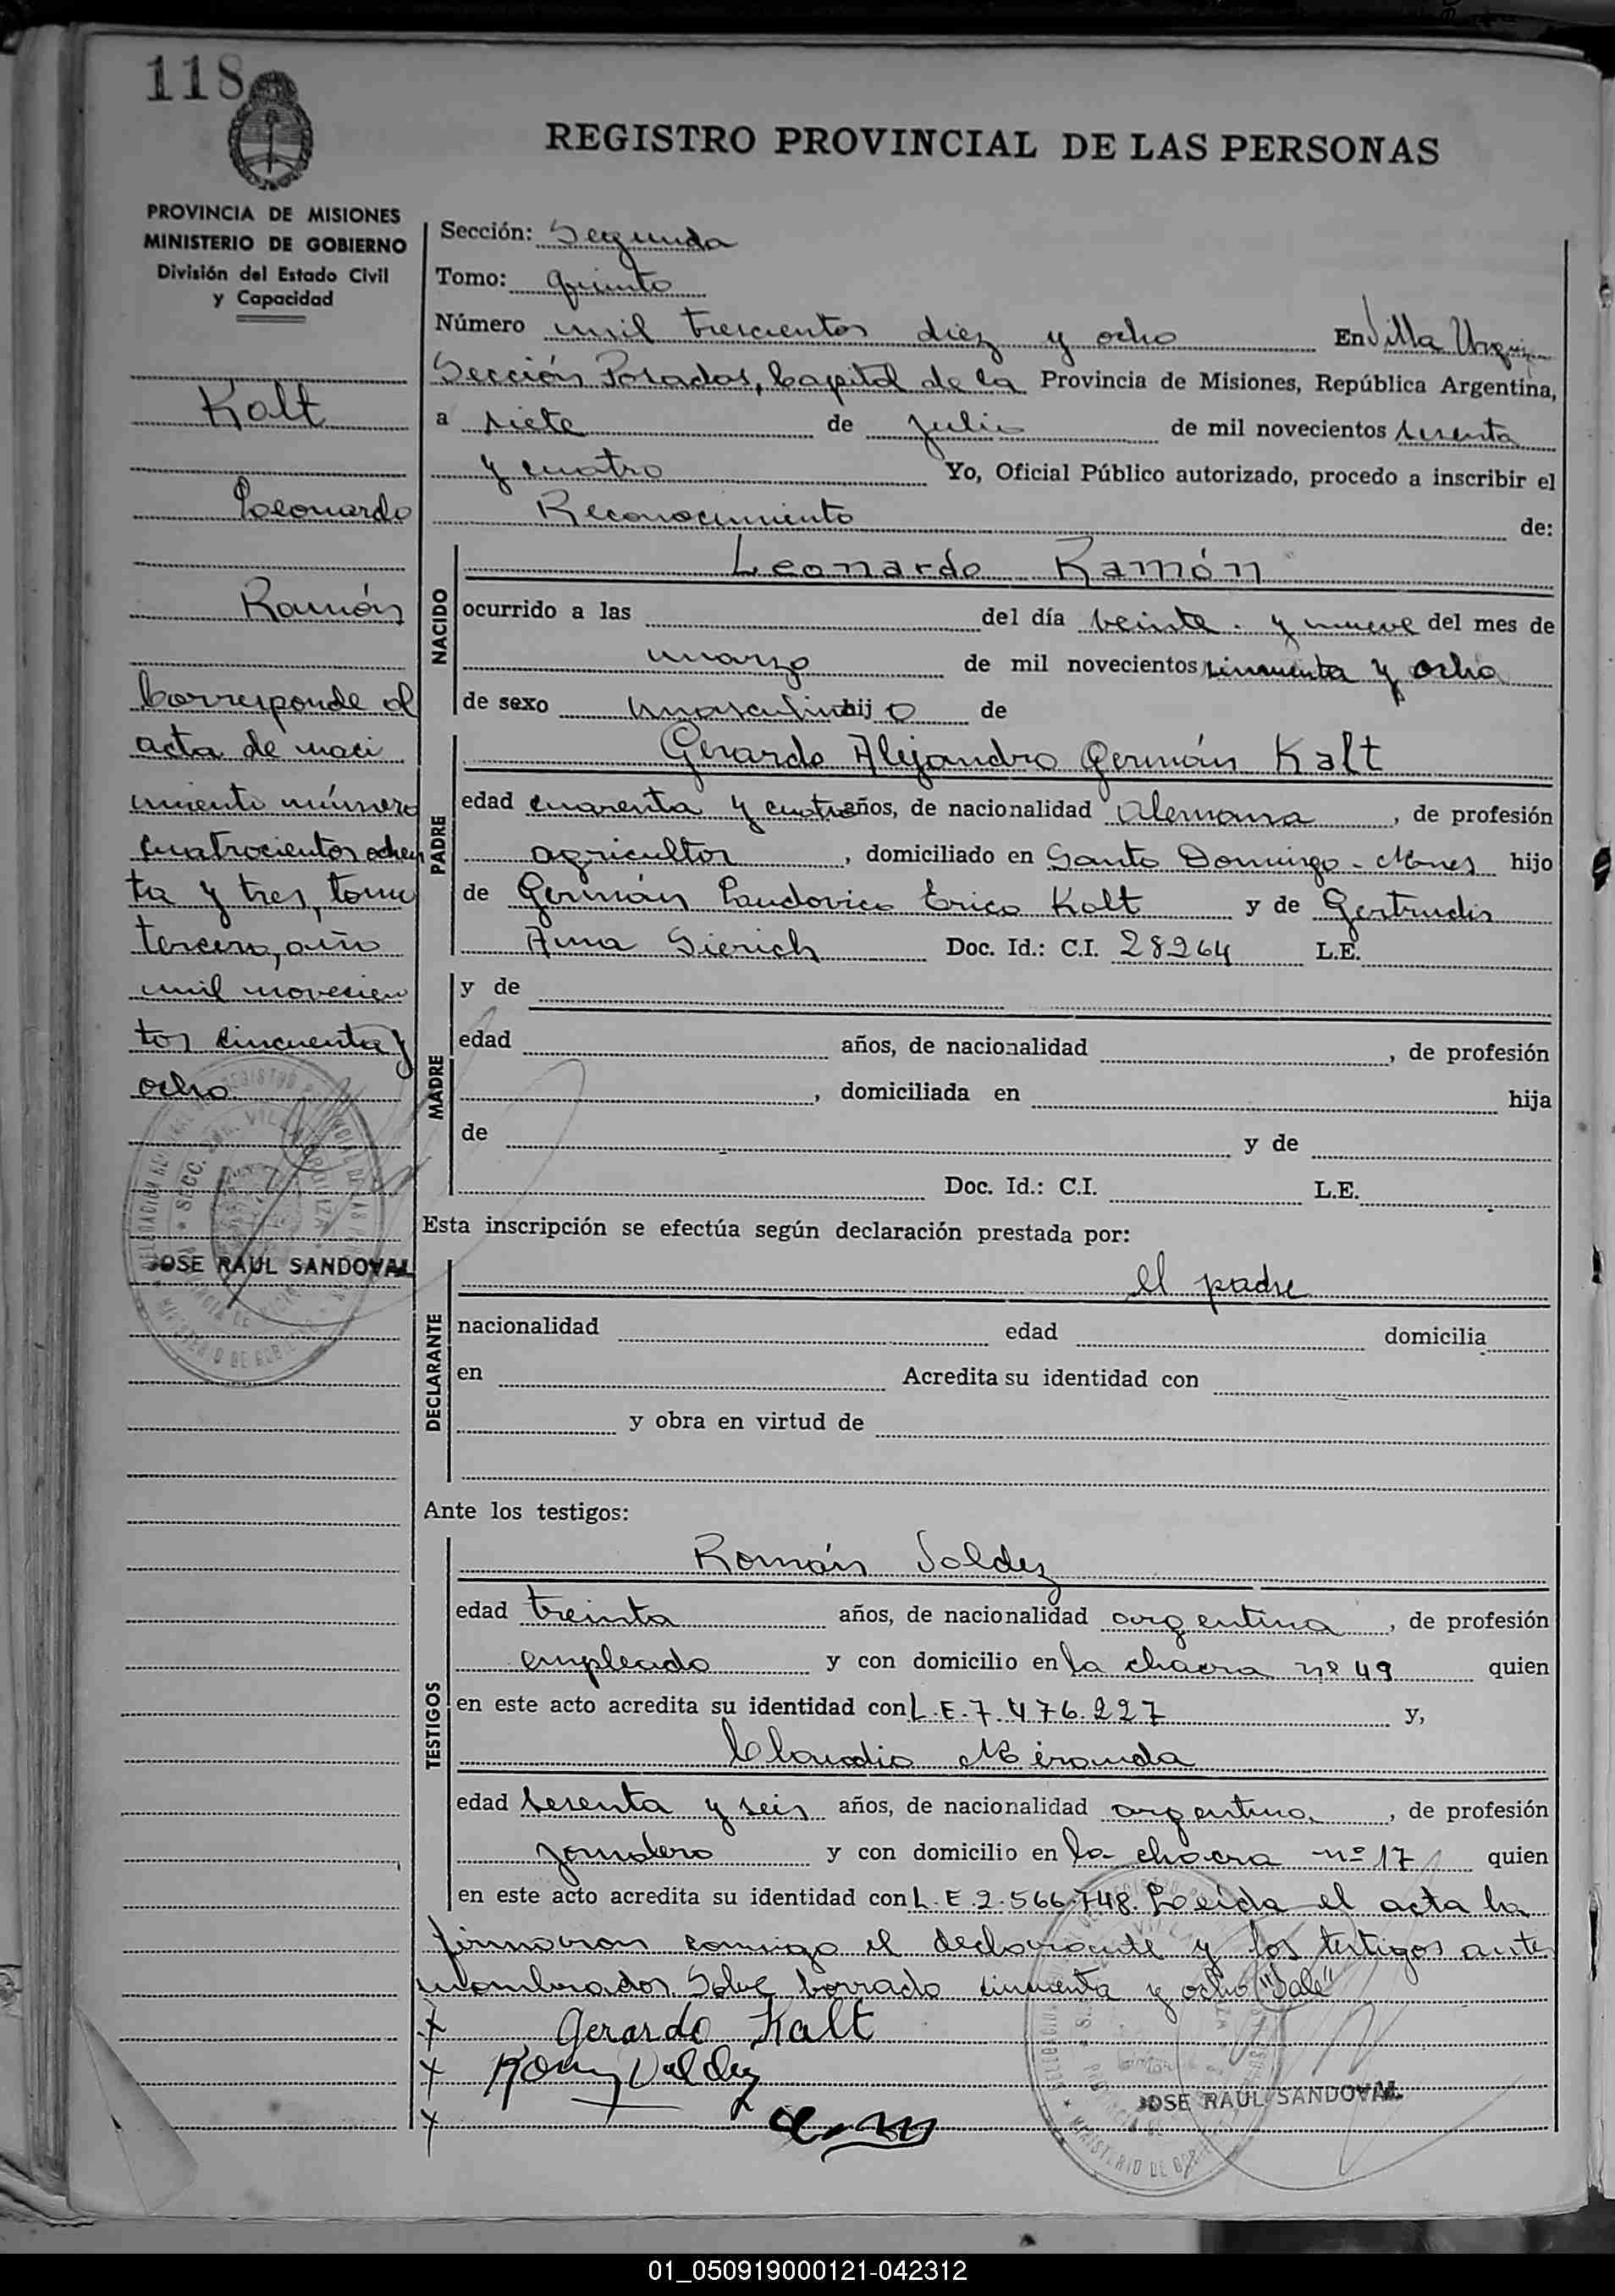 118
REGISTRO PROVINCIAL DE LAS PERSONAS
PROVINCIA DE MISIONES
MINISTERIO DE GOBIERNO
División del Estado Civil
y Capacidad
Kalt
Leonardo
Ramón
Corresponde al
acta de naci
miento número
cuatrocientos ochen
ta y tres, tomo
tercero, año
mil novecien
tos cincuenta y
ocho
JOSE RAUL SANDOVAL
Sección: Segunda
Tomo: quinto
Número mil trescientos diez y ocho En Villa Urquiza
Sección Posadas, Capital de la Provincia de Misiones, República Argentina,
a siete de julio de mil novecientos sesenta
y cuatro Yo, Oficial Público autorizado, procedo a inscribir el
Reconocimiento de:
NACIDO
Leonardo Ramón
ocurrido a las del día veinte y nueve del mes de
marzo de mil novecientos cincuenta y ocho
de sexo masculino hijo de
PADRE
Gerardo Alejandro Germán Kalt
edad cuarenta y cuatro años, de nacionalidad alemana, de profesión
agricultor, domiciliado en Santo Domingo - Mnes hijo
de Germán Ludovico Erico Kalt y de Gertrudis
Ana Sierich Doc. Id.: C.I. 28264 L.E.
MADRE
y de
edad años, de nacionalidad , de profesión
, domiciliada en hija
de y de
Doc. Id.: C.I. L.E.
Esta inscripción se efectúa según declaración prestada por:
DECLARANTE
el padre
nacionalidad edad domicilia
en Acredita su identidad con
y obra en virtud de
Ante los testigos:
TESTIGOS
Román Valdez
edad treinta años, de nacionalidad argentina, de profesión
empleado y con domicilio en la chacra nº 49 quien
en este acto acredita su identidad con L.E. 7.476.227 y,
Claudio Miranda
edad sesenta y seis años, de nacionalidad argentina, de profesión
jornalero y con domicilio en la chacra nº 17 quien
en este acto acredita su identidad con L.E. 2.566.748. Leída el acta la
firmaron conmigo el declarante y los testigos ante
nombrados. Sobre borrado cincuenta y ocho "Vale"
x Gerardo Kalt
x Valdez
x
JOSE RAUL SANDOVAL
01_050919000121-042312